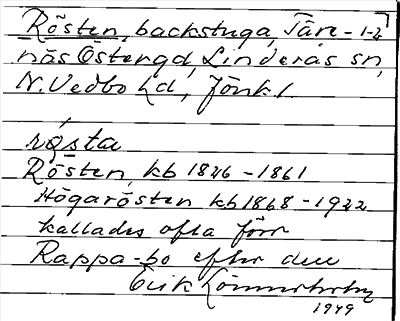 Rösten, backstuga, Täre- 1-2
näs Östergd, Linderås sn,
N. Vedbo hd, Jönk.l
rö̀sta
Rösten kb 1826-1861
Högarösten kb 1868-1922
kallades ofta förr
Rappa-bo efter den
Erik
1949